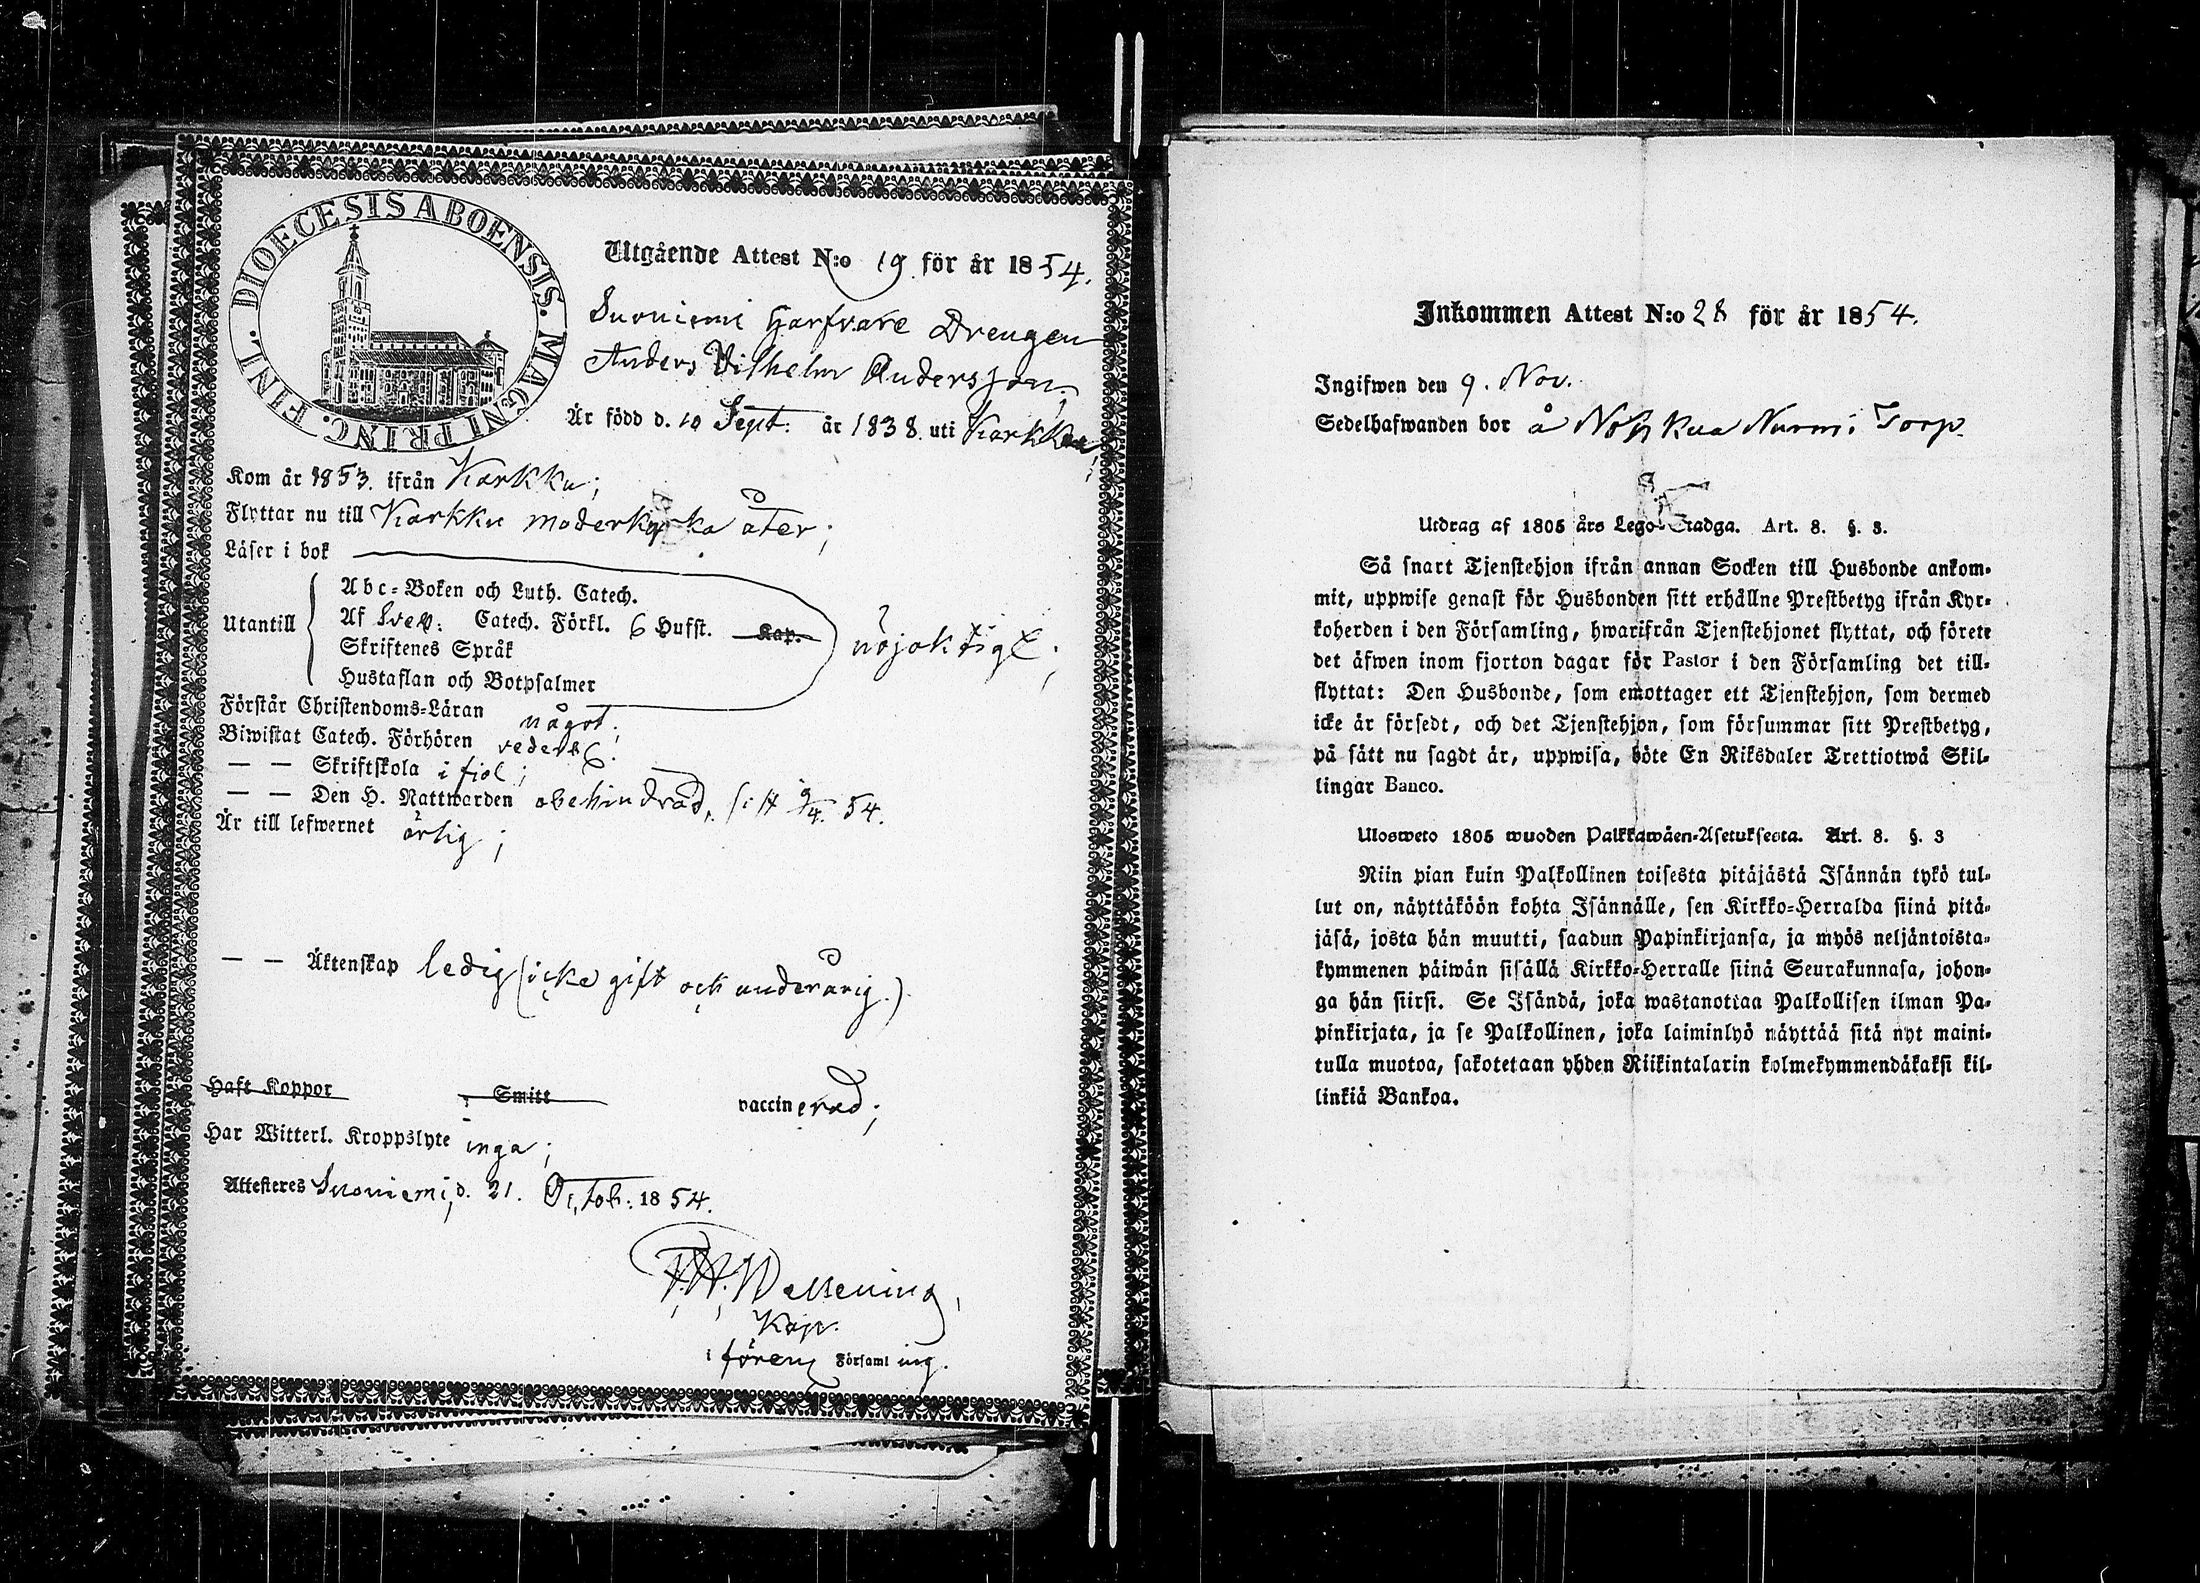 DIOECESIS ABOENSIS. MAGNI PRINC. FINL.
Utgående Attest N:o 19 för år 1854.
Suoniemi Drengen
Anders Vilhelm Andersson;
Är född d. 10 Sept. år 1838. uti Karkku;
Kom år 1853. ifrån Karkku;
Flyttar nu till Karkku moderkyrka åter;
Läser i bok
Utantill
Abc-Boken och Luth. Catech.
Af Sveb. Catech. Förkl. 6 Hufst. Kap.
Skriftenes Språk
Hustaflan och Botpsalmer
nöjaktigt;
Förstår Christendoms-Läran något;
Biwistat Catech. Förhören
— — Skriftskola i fjol;
— — Den H. Nattwarden obehindrad, sist 9/4. 54.
Är till lefwernet ärlig;
— — Äktenskap ledig (icke gift och underårig.)
Haft Koppor Smitt vaccinerad;
Har Witterl. Kroppslyte inga;
Attesteras Suoniemi, d. 21. Octob. 1854.
Kapl.
i Församling.
Inkommen Attest N:o 28 för år 1854.
Ingifwen den 9. Nov.
Sedelhafwanden bor å Nurmi Torp.
Utdrag af 1805 års Lego-Stadga. Art. 8. §. 3.
Så snart Tjenstehjon ifrån annan Socken till Husbonde ankom-
mit, uppwise genast för Husbonden sitt erhållne Prestbetyg ifrån Kyr-
koherden i den Församling, hwarifrån Tjenstehjonet flyttat, och förete
det äfwen inom fjorton dagar för Pastor i den Församling det till-
flyttat: Den Husbonde, som emottager ett Tjenstehjon, som dermed
icke är försedt, och det Tjenstehjon, som försummar sitt Prestbetyg,
på sätt nu sagdt är, uppwisa, böte En Riksdaler Trettiotwå Skil-
lingar Banco.
Ulosweto 1805 wuoden Palkkawäen-Asetuksesta. Art. 8. §. 3
Niin pian kuin Palkollinen toisesta pitäjästä Isännän tykö tul-
lut on, näyttäköön kohta Isännälle, sen Kirkko-Herralda siinä pitä-
jäsä, josta hän muutti, saadun Papinkirjansa, ja myös neljäntoista-
kymmenen päiwän sisällä Kirkko-Herralle siinä Seurakunnasa, johon-
ga hän siirsi. Se Isändä, joka wastanottaa Palkollisen ilman Pa-
pinkirjata, ja se Palkollinen, joka laiminlyö näyttää sitä nyt maini-
tulla muotoa, sakotetaan yhden Riikintalarin kolmekymmendäkaksi kil-
linkiä Bankoa.